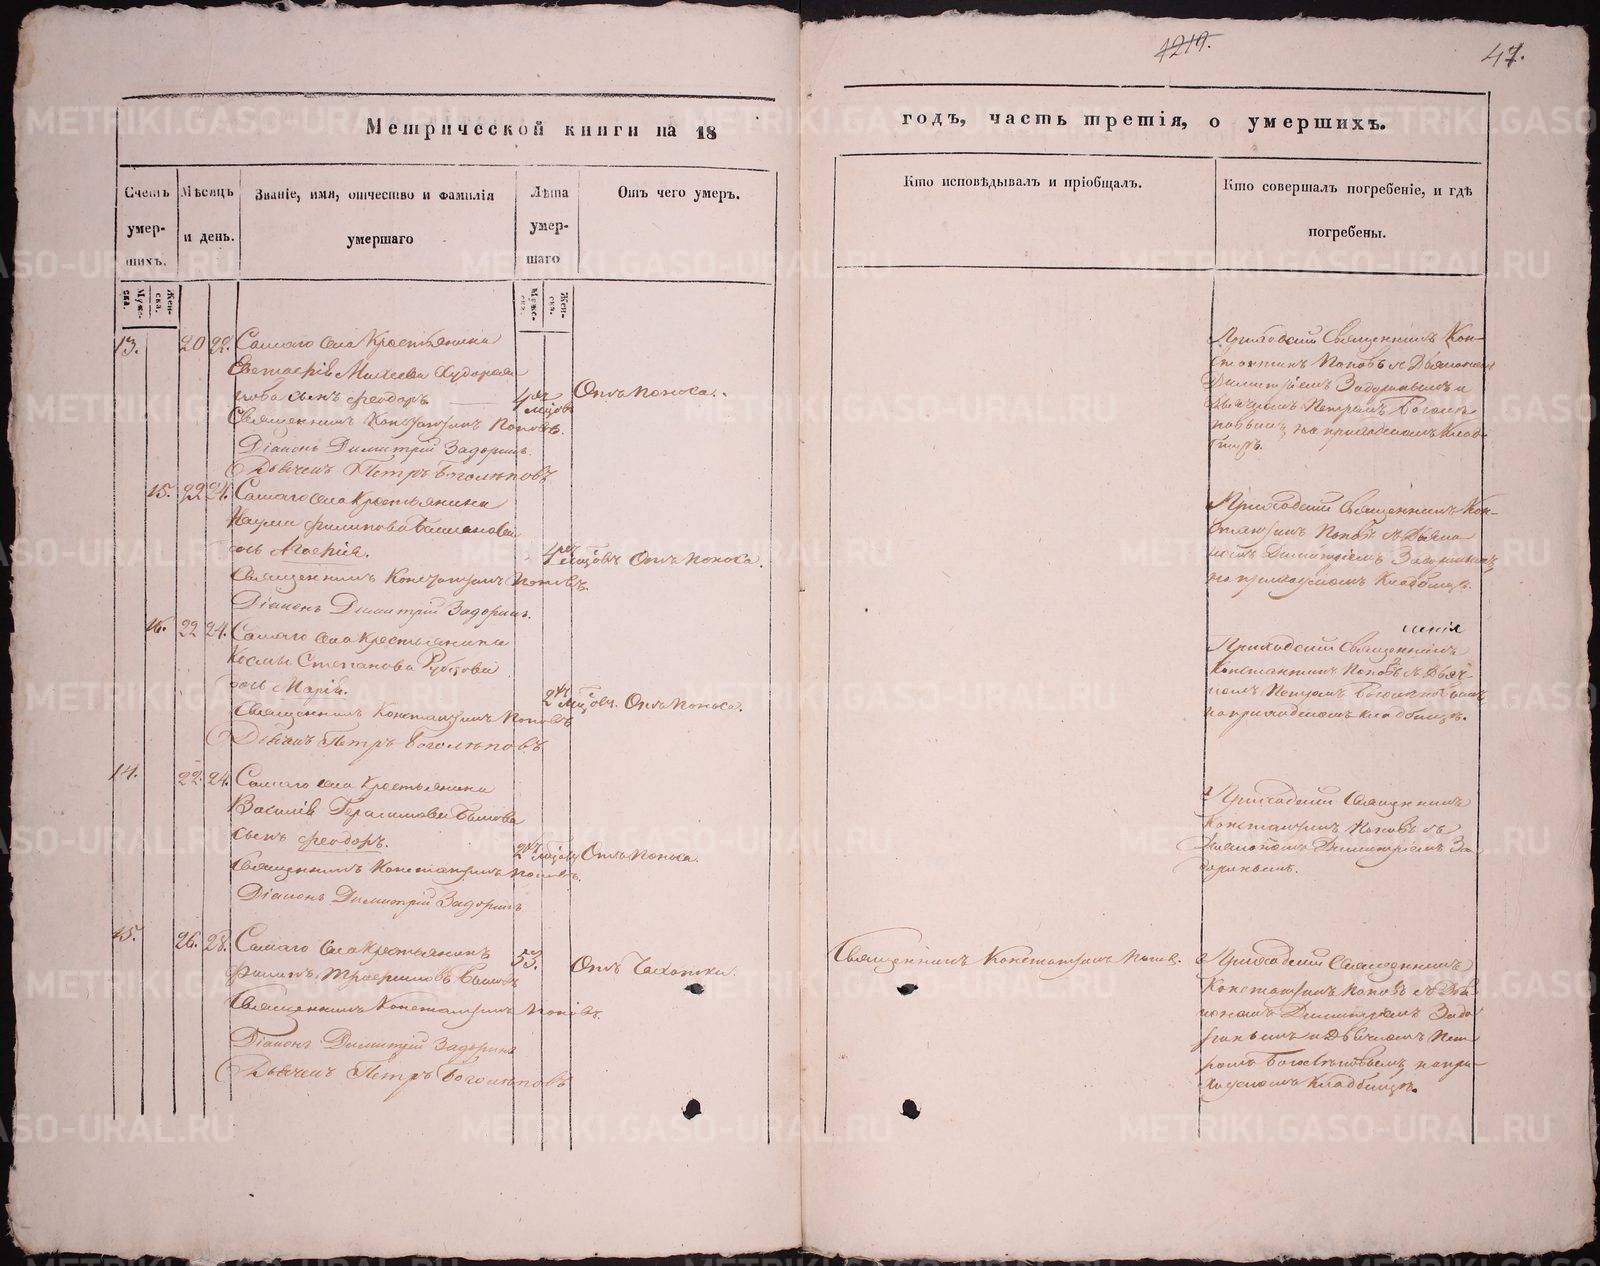 1219.
47.
Метрической книги на 18
годъ, часть третія, о умершихъ.
Счетъ умер-шихъ.
Мѣсяцъ и день.
Званіе, имя, отчество и фамилія умершаго
Лѣта умер-шаго
Отъ чего умеръ.
Кто исповѣдывалъ и пріобщалъ.
Кто совершалъ погребеніе, и гдѣ погребены.
Муже-ска.
Жен-ска.
Муже-ска.
Жен-ска.
13. 20 22. Самаго села Крестьянина
Михеева
сынъ Феодоръ 4 мѣсяцовъ Отъ поноса.
Священникъ Константинъ Поповъ.
Діаконъ Димитрій Задоринъ.
Дьячекъ Петръ Боголѣповъ
Приходскій Священникъ Кон-
стантинъ Поповъ съ Діакономъ
Димитріемъ Задоринымъ и
Дьячкомъ Петромъ Боголѣ-
повымъ на приходскомъ клад-
бищѣ.
15. 22 24. Самаго села Крестьянина
Наума Филипова
дочь 4 мѣсяцовъ Отъ поноса.
Священникъ Константинъ Поповъ.
Діаконъ Димитрій Задоринъ.
Приходскій Священникъ Кон-
стантинъ Поповъ съ Діако-
номъ Димитріемъ Задоринымъ
на приходскомъ кладбищѣ.
16. 22 24. Самаго села Крестьянина
Космы Степанова Рубцова
дочь Марія. 2 мѣсяцовъ. Отъ поноса.
Священникъ Константинъ Поповъ
Дьячекъ Петръ Боголѣповъ
Приходскій Священникъ
Константинъ Поповъ съ Дьяч-
комъ Петромъ Боголѣповымъ
на приходскомъ кладбищѣ.
14. 22. 24. Самаго села Крестьянина
Василія Герасимова Бызова
сынъ Феодоръ. 2 мѣсяцовъ Отъ поноса.
Священникъ Константинъ Поповъ.
Діаконъ Димитрій Задоринъ
Приходскій Священникъ
Константинъ Поповъ съ
Діакономъ Димитріемъ За-
доринымъ.
15. 26. 28. Самаго села Крестьянинъ 53. Отъ чахотки.
Филипъ
Священникъ Константинъ Поповъ.
Діаконъ Димитрій Задоринъ
Дьячекъ Петръ Боголѣповъ
Священникъ Константинъ Поповъ.
Приходскій Священникъ
Константинъ Поповъ съ Діа-
кономъ Димитріемъ Задо-
ринымъ и Дьячкомъ Пет-
ромъ Боголѣповымъ на при-
ходскомъ кладбищѣ.
METRIKI.GASO-URAL.RU